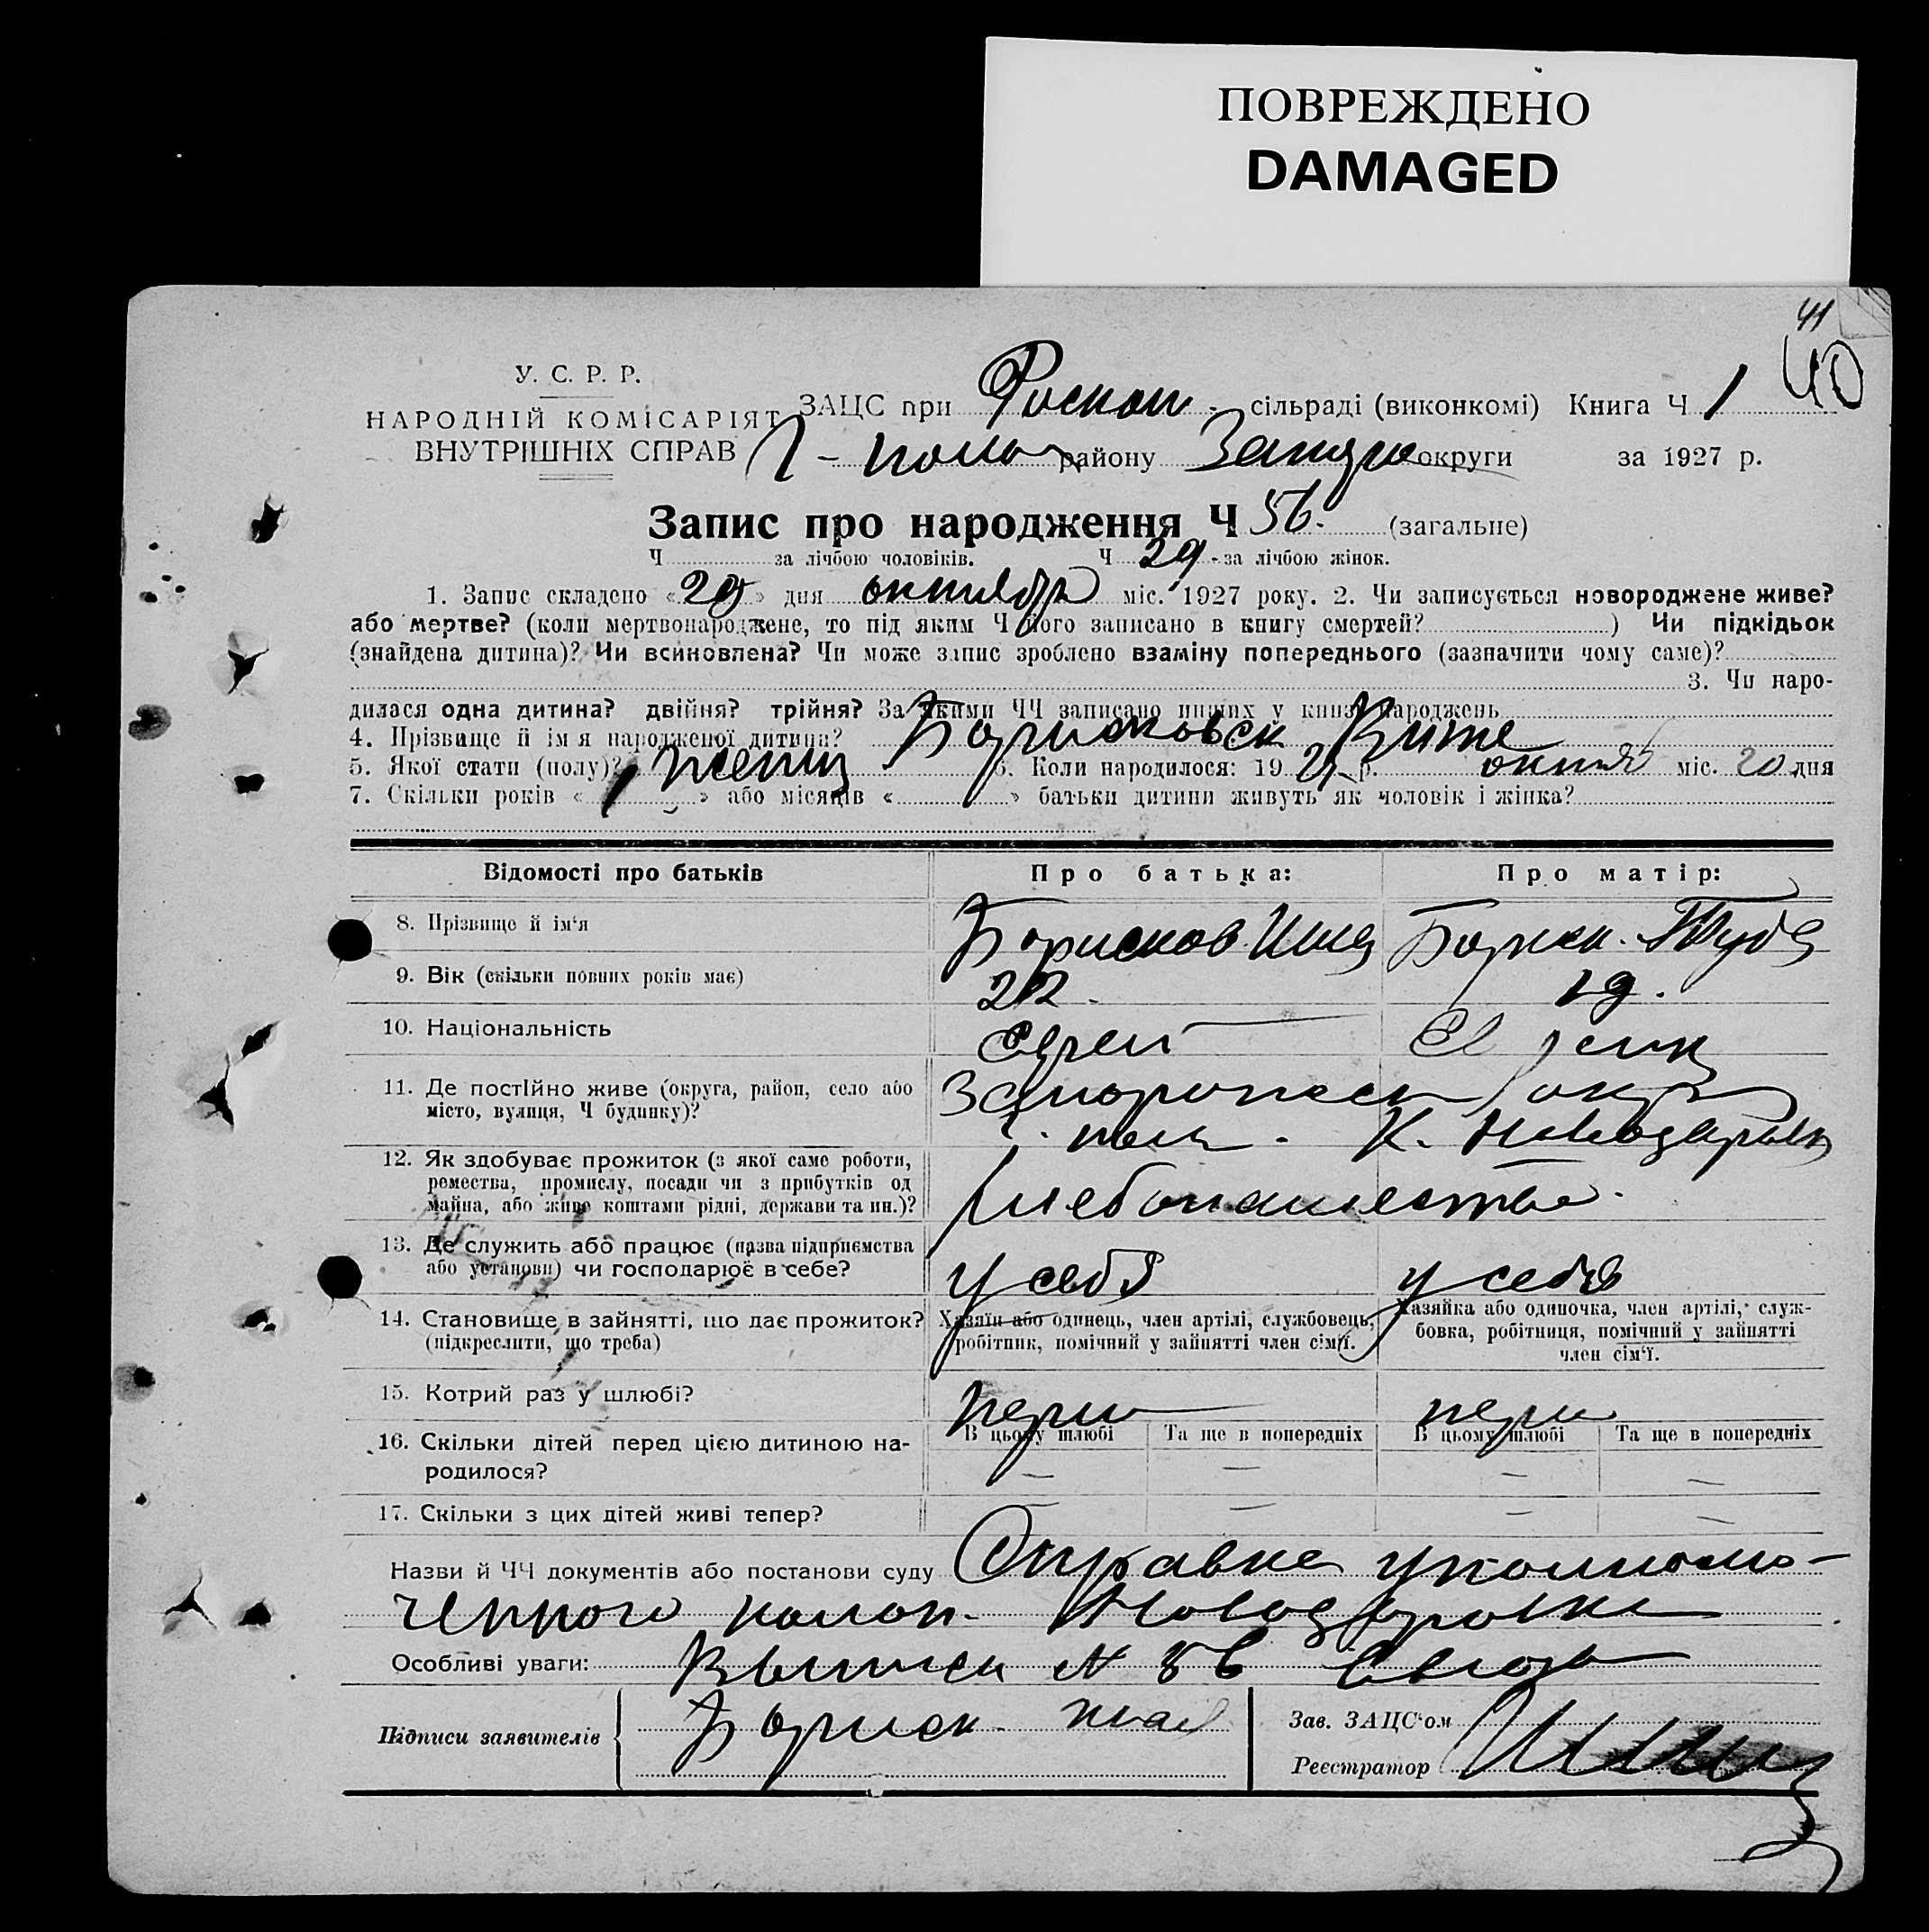 ПОВРЕЖДЕНО
DAMAGED
41
40
У. С. Р. Р.
НАРОДНІЙ КОМІСАРІЯТ
ВНУТРІШНІХ СПРАВ
ЗАЦС при сільраді (виконкомі) Книга Ч 1
району округи за 1927 р.
Запис про народження Ч 56. (загальне)
Ч за лічбою чоловіків. Ч 29 за лічбою жінок.
1. Запис складено «29» дня октября міс. 1927 року. 2. Чи записується новороджене живе?
або мертве? (коли мертвонароджене, то під яким Ч його записано в книгу смертей? ) Чи підкідьок
(знайдена дитина)? Чи всиновлена? Чи може запис зроблено взаміну попереднього (зазначити чому саме)?
3. Чи наро-
дилася одна дитина? двійня? трійня? За якими ЧЧ записано инших у книзі народжень
4. Прізвище й ім'я народженої дитини? Борисковск
5. Якої стати (полу)? женщ 6. Коли народилося: 19 27 р. октяб міс. 20 дня
7. Скільки років « » або місяців « » батьки дитини живуть як чоловік і жінка?
Відомості про батьків
Про батька:
Про матір:
8. Прізвище й ім'я Борисков Бориск.
9. Вік (скільки повних років має) 22. 19.
10. Національність еврей еврейк
11. Де постійно живе (округа, район, село або
місто, вулиця, Ч будинку)? Запорожск окр
К. Новодаровк
12. Як здобуває прожиток (з якої саме роботи,
ремества, промислу, посади чи з прибутків од
майна, або живе коштами рідні, держави та ин.)? Хлебопашество.
13. Де служить або працює (назва підприємства
або установи) чи господарює в себе? у себя у себя
14. Становище в зайнятті, що дає прожиток?
(підкреслити, що треба)
Хазяїн або одинець, член артілі, службовець,
робітник, помічний у зайнятті член сім'ї.
Хазяйка або одиночка, член артілі, служ-
бовка, робітниця, помічний у зайнятті
член сім'ї.
15. Котрий раз у шлюбі? перш перш
16. Скільки дітей перед цією дитиною на-
родилося?
В цьому шлюбі Та ще в попередніх В цьому шлюбі Та ще в попередніх
— — — —
17. Скільки з цих дітей живі тепер? — — — —
Назви й ЧЧ документів або постанови суду Справка уполномо-
ченного колон. Новодаровка
Особливі уваги: Выписи N 86
Підписи заявителів Бориск.
Зав. ЗАЦС'ом
Реєстратор